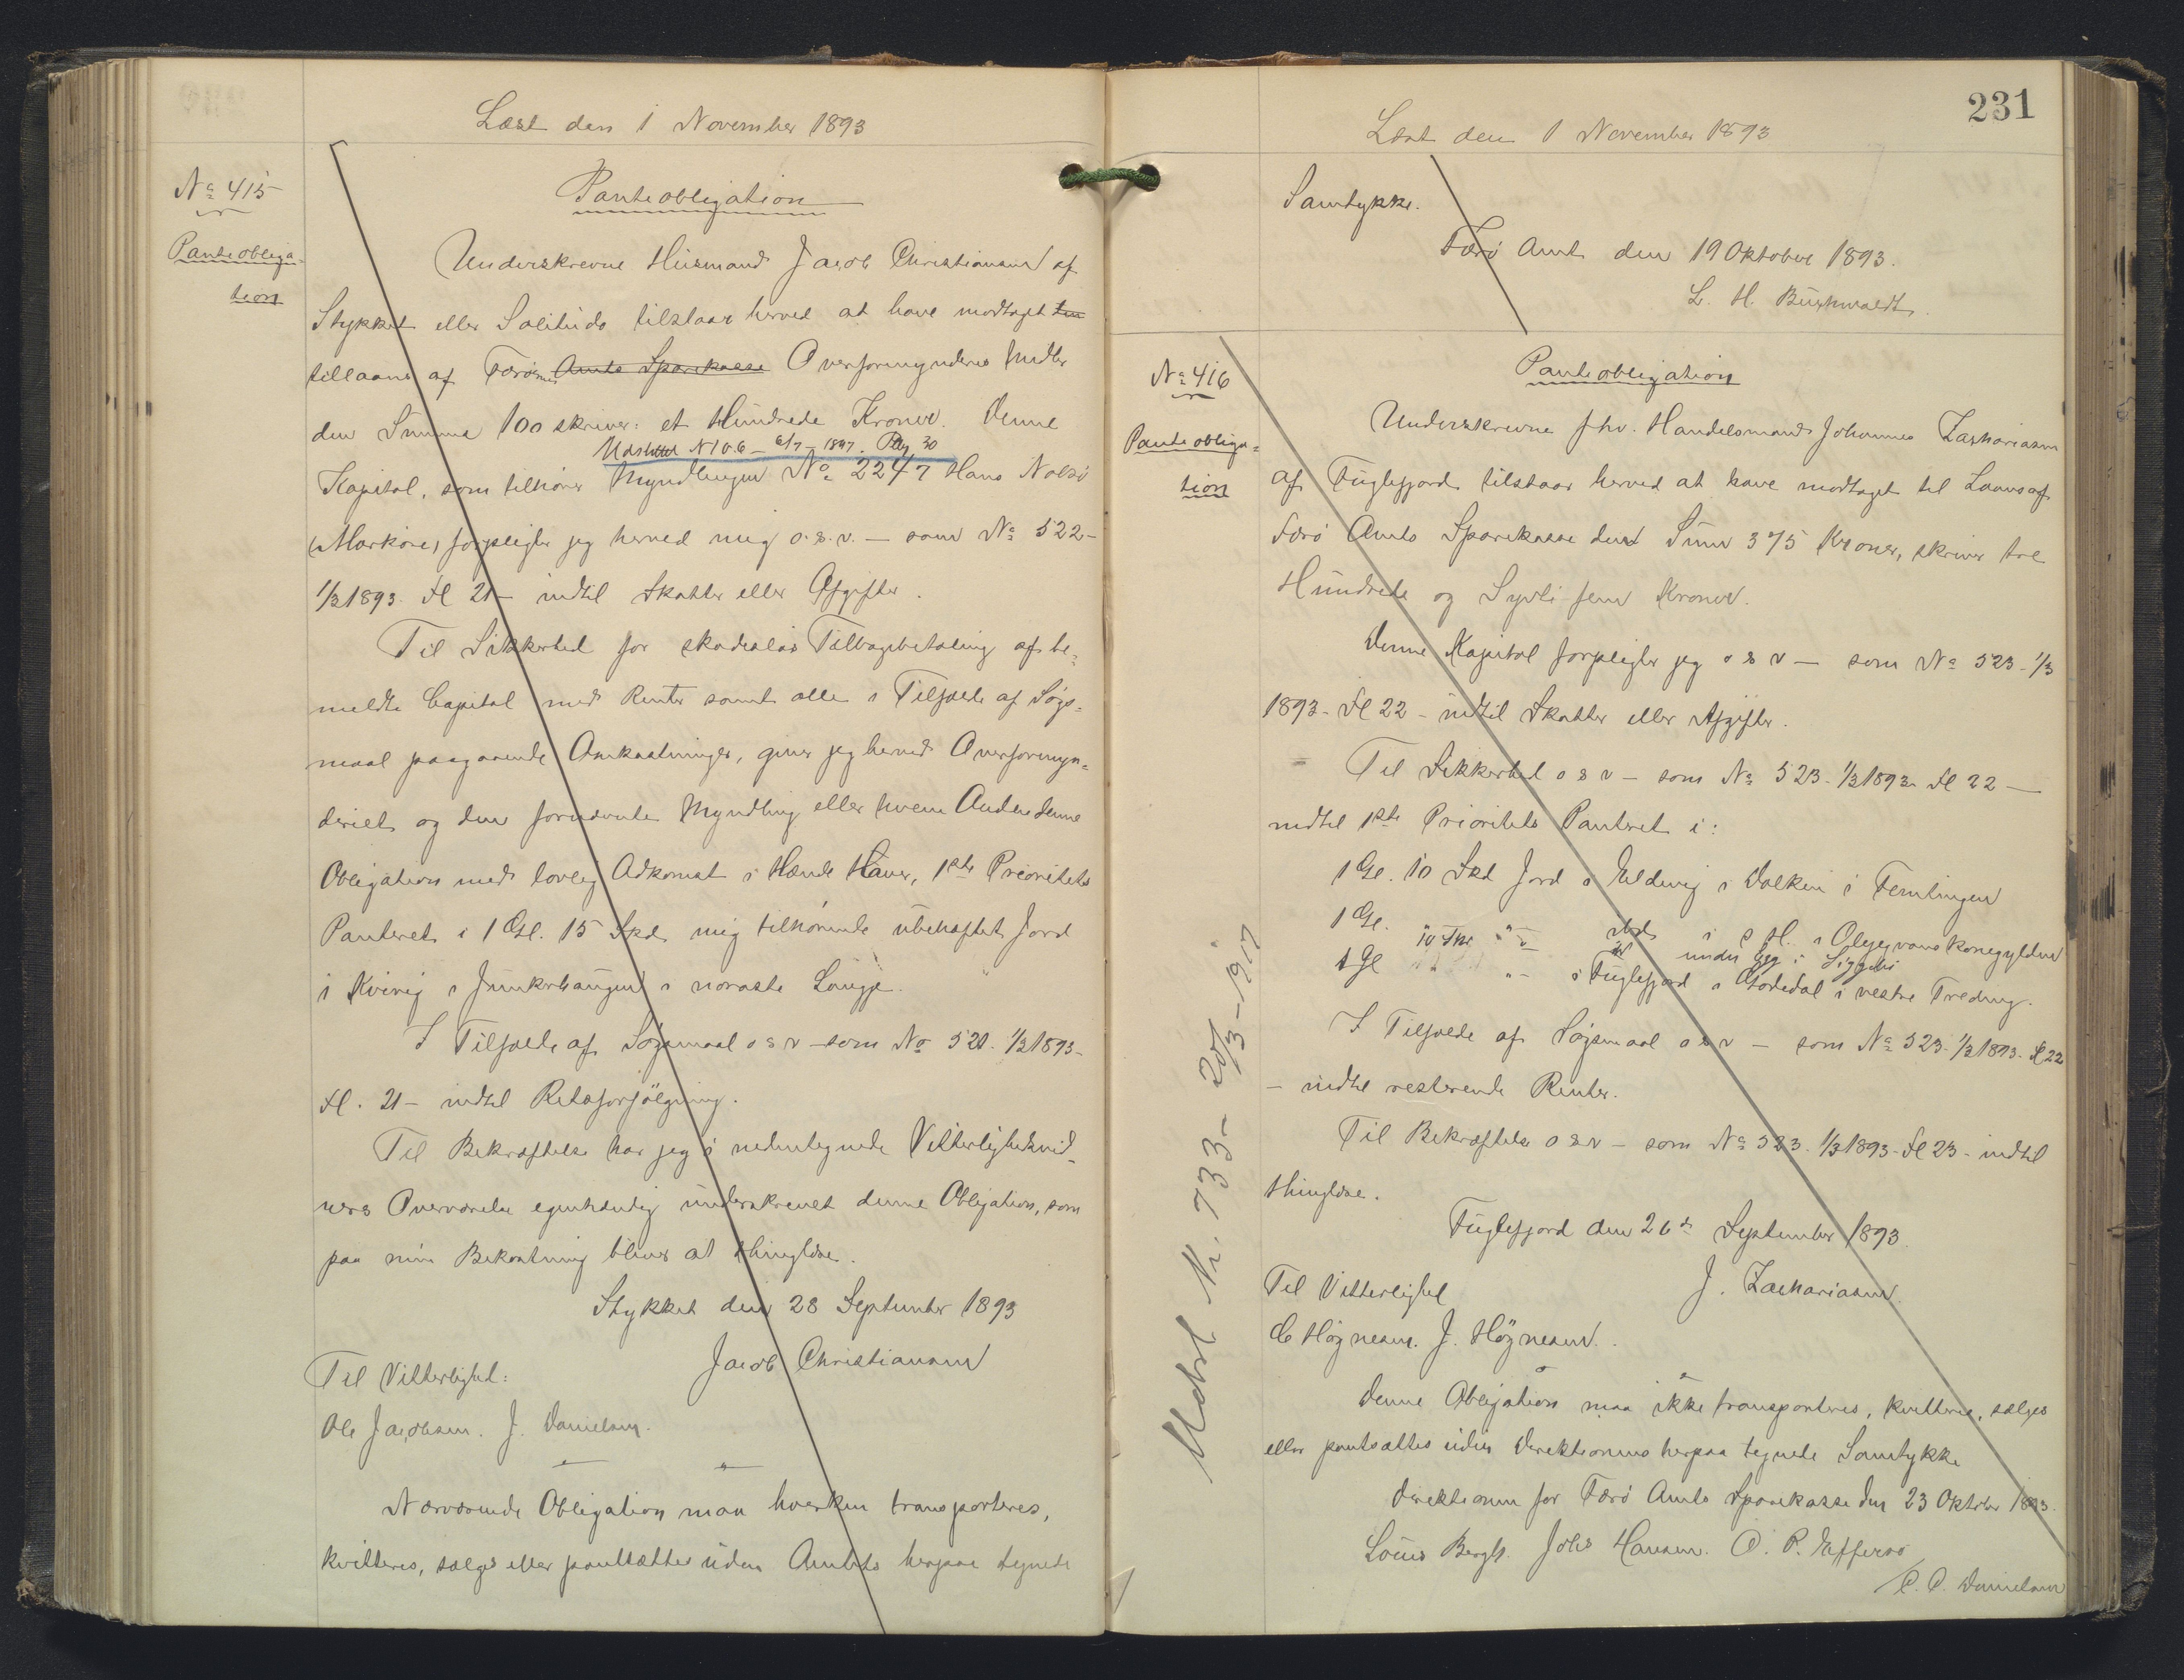 Læst den 1 November 1893
No 415
Panteobliga-
tion
Panteobligation
Underskrevne Husmand Jacob Christiansen af
Stykket eller Solitude tilstaar herved at have modtaget
tillaans af Færøernes Amts Sparekasse Overformynderies Midler
den Summa 100 skriver: et Hundrede Kroner. Denne
Udslettet N 106 - 6/7 - 1897. Pag 30
Kapital, som tilhører Myndlingen No 2247 Hans Nolsø
forpligter jeg herved mig o.s.v. — som No 522-
1/3 1893. Fl 21 — indtil Skatter eller Afgifter.
Til Sikkerhed for skadesløs Tilbagebetaling af be-
meldte Capital med Renter samt alle i Tilfælde af Søgs-
maal paagaaende Omkostninger, giver jeg herved Overformyn-
deriet og den fornævnte Myndling eller hvem Anden denne
Obligation med lovlig Adkomst i Hænde Haver, 1ste Prioritets
Panteret i 1 Gl. 15 Skd. mig tilhørende ubehæftet Jord
i Kvivig i Junkrhaugen i noraste Laugje.
I Tilfælde af Søgsmaal o s v — som No 521. 1/3 1893-
Fl. 21 — indtil Retsforfølgning.
Til Bekræftelse har jeg i nedentegnede Vitterlighedsvid-
ners Overværelse egenhændig underskrevet denne Obligation, som
paa min Bekostning bliver at thinglæse.
Stykket den 28 September 1893
Jacob Christiansen
Til Vitterlighed:
Ole Jacobsen. J. Danielsen.
Nærværende Obligation maa hverken transporteres,
kvitteres, sælges eller pantsættes uden Amtets herpaa tegnede
231
Læst den 1 November 1893
Samtykke.
Færø Amt den 19 Oktober 1893.
L. H. Buchwaldt.
No 416
Panteobliga-
tion
Panteobligation
Underskrevne fhv. Handelsmand Johannes Zachariasen
af Fuglefjord tilstaar herved at have modtaget til Laans af
Færø Amts Sparekasse den Sum 375 Kroner, skriver tre
Hundrede og Syvti fem Kroner.
Denne Kapital forpligter jeg o s v — som No 523 - 1/3
1893 - Fl 22 - indtil Skatter eller Afgifter.
Til Sikkerhed o s v — som No 523. 1/3 1893. Fl 22 —
indtil 1ste Prioritets Panteret i:
1 Gl. 10 Skd Jord i Eldevig i Dalken i Femtingen
1 Gl. 10 Skd
1 Gl " i Fuglefjord i Gødedal i vestre Treding.
I Tilfælde af Søgsmaal o s v — som No 523. 1/3 1893. Fl 22
— indtil resterende Renter.
Til Bekræftelse o s v — som No 523. 1/3 1893 - Fl 23 - indtil
thinglæse.
Fuglefjord den 26de September 1893.
J. Zachariasen.
Til Vitterlighed
Høgnesen. J. Høgnesen.
Denne Obligation maa ikke transporteres, kvitteres, sælges
eller pantsættes uden Direktionens herpaa tegnede Samtykke
Direktionen for Færø Amts Sparekasse den 23 Oktober 1893.
Louis Bergh. Johs Hansen. O. P. Effersø
Danielsen
Udsl Nr. 733 - 20/3 - 1917